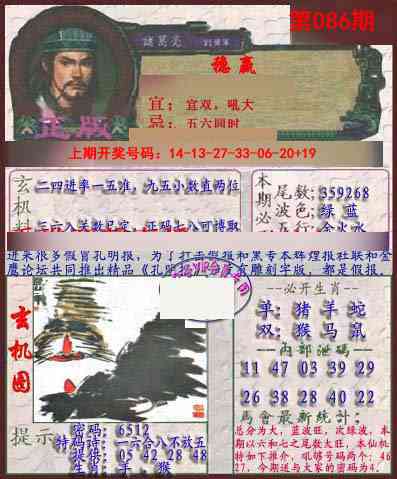 第086期
諸葛亮
穩赢
宜：宜双，吼大
忌：五六同时
正版
上期开奖号码：14-13-27-33-06-20+19
玄机料
二四进率一五准，九五小数直两位
本期必
尾数;359268
波色;绿 蓝
五行;金火水
进来很多假冒孔明报，为了打击假报和黑专本辉煌报社联和金
鹰论坛共同推出精品《孔明报》
有雕刻字版，都是假报。
玄机图
--必开生肖--
单:猪羊蛇
双:猴马鼠
--内部泄码--
11 47 03 39 29
26 38 28 40 22
馬會最新統計:
总分为大，蓝波旺，次绿波，本
期以六和七之尾数大旺，本仙机
特如下推介，吼够号码两个: 46
27，今期送与大家的密码为4.
提示
密码: 6512
特码诗: 一六合八不放五
提供: 05 42 28 48
生肖: 羊、猴